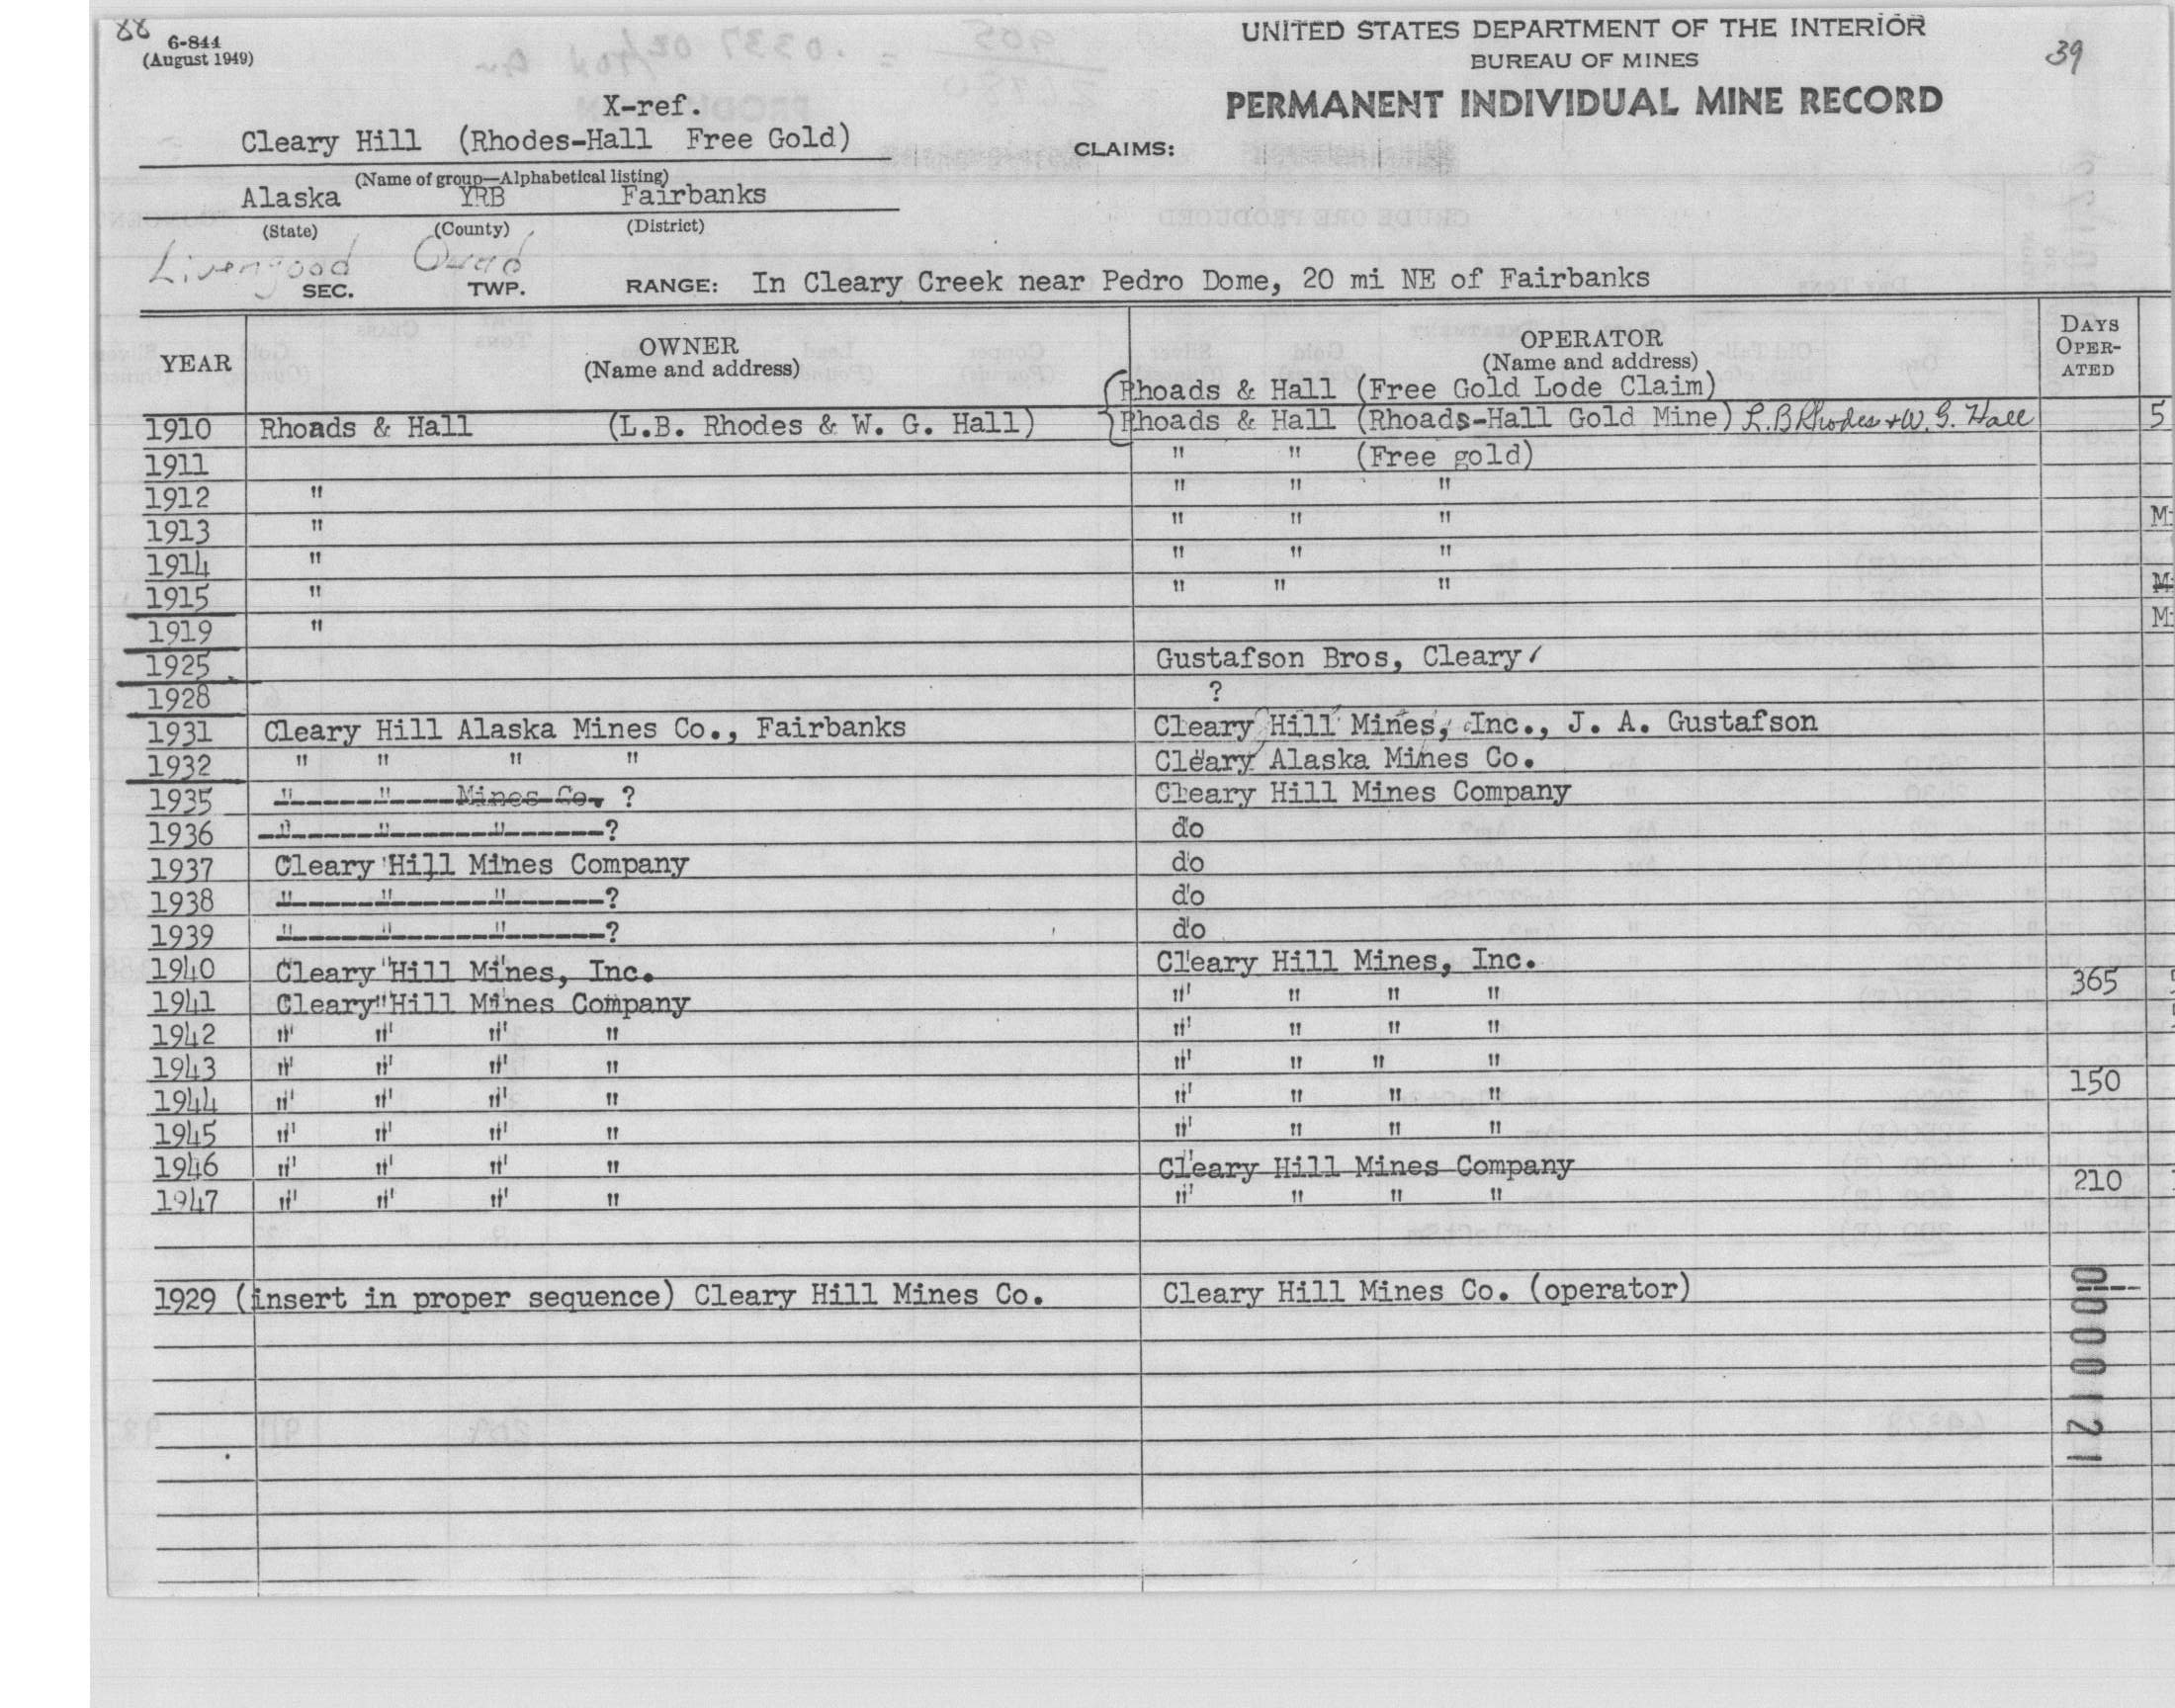 88
6-844
(August 1949)
UNITED STATES DEPARTMENT OF THE INTERIOR
BUREAU OF MINES
39
PERMANENT INDIVIDUAL MINE RECORD
X-ref.
Cleary Hill (Rhodes-Hall Free Gold)
CLAIMS:
(Name of group—Alphabetical listing)
Alaska YRB Fairbanks
(State) (County) (District)
Livengood Quad
SEC. TWP. RANGE: In Cleary Creek near Pedro Dome, 20 mi NE of Fairbanks
YEAR OWNER (Name and address) OPERATOR (Name and address) DAYS OPER-ATED
(Rhoads & Hall (Free Gold Lode Claim)
1910 Rhoads & Hall (L.B. Rhodes & W. G. Hall) Rhoads & Hall (Rhoads-Hall Gold Mine) L.B Rhodes + W. G. Hall 5
1911 " " (Free gold)
1912 " " " "
1913 " " " " M-
1914 " " " "
1915 " " " " M-
1919 " M-
1925 Gustafson Bros, Cleary
1928 ?
1931 Cleary Hill Alaska Mines Co., Fairbanks Cleary Hill Mines, Inc., J. A. Gustafson
1932 " " " " Cleary Alaska Mines Co.
1935 " " Mines Co. ? Cleary Hill Mines Company
1936 " " " ? do
1937 Cleary Hill Mines Company do
1938 " " " ? do
1939 " " " ? do
1940 Cleary Hill Mines, Inc. Cleary Hill Mines, Inc.
1941 Cleary Hill Mines Company " " " " 365
1942 " " " " " " " "
1943 " " " " " " " "
1944 " " " " " " " " 150
1945 " " " " " " " "
1946 " " " " Cleary Hill Mines Company
1947 " " " " " " " " 210
1929 (insert in proper sequence) Cleary Hill Mines Co. Cleary Hill Mines Co. (operator)
0000121